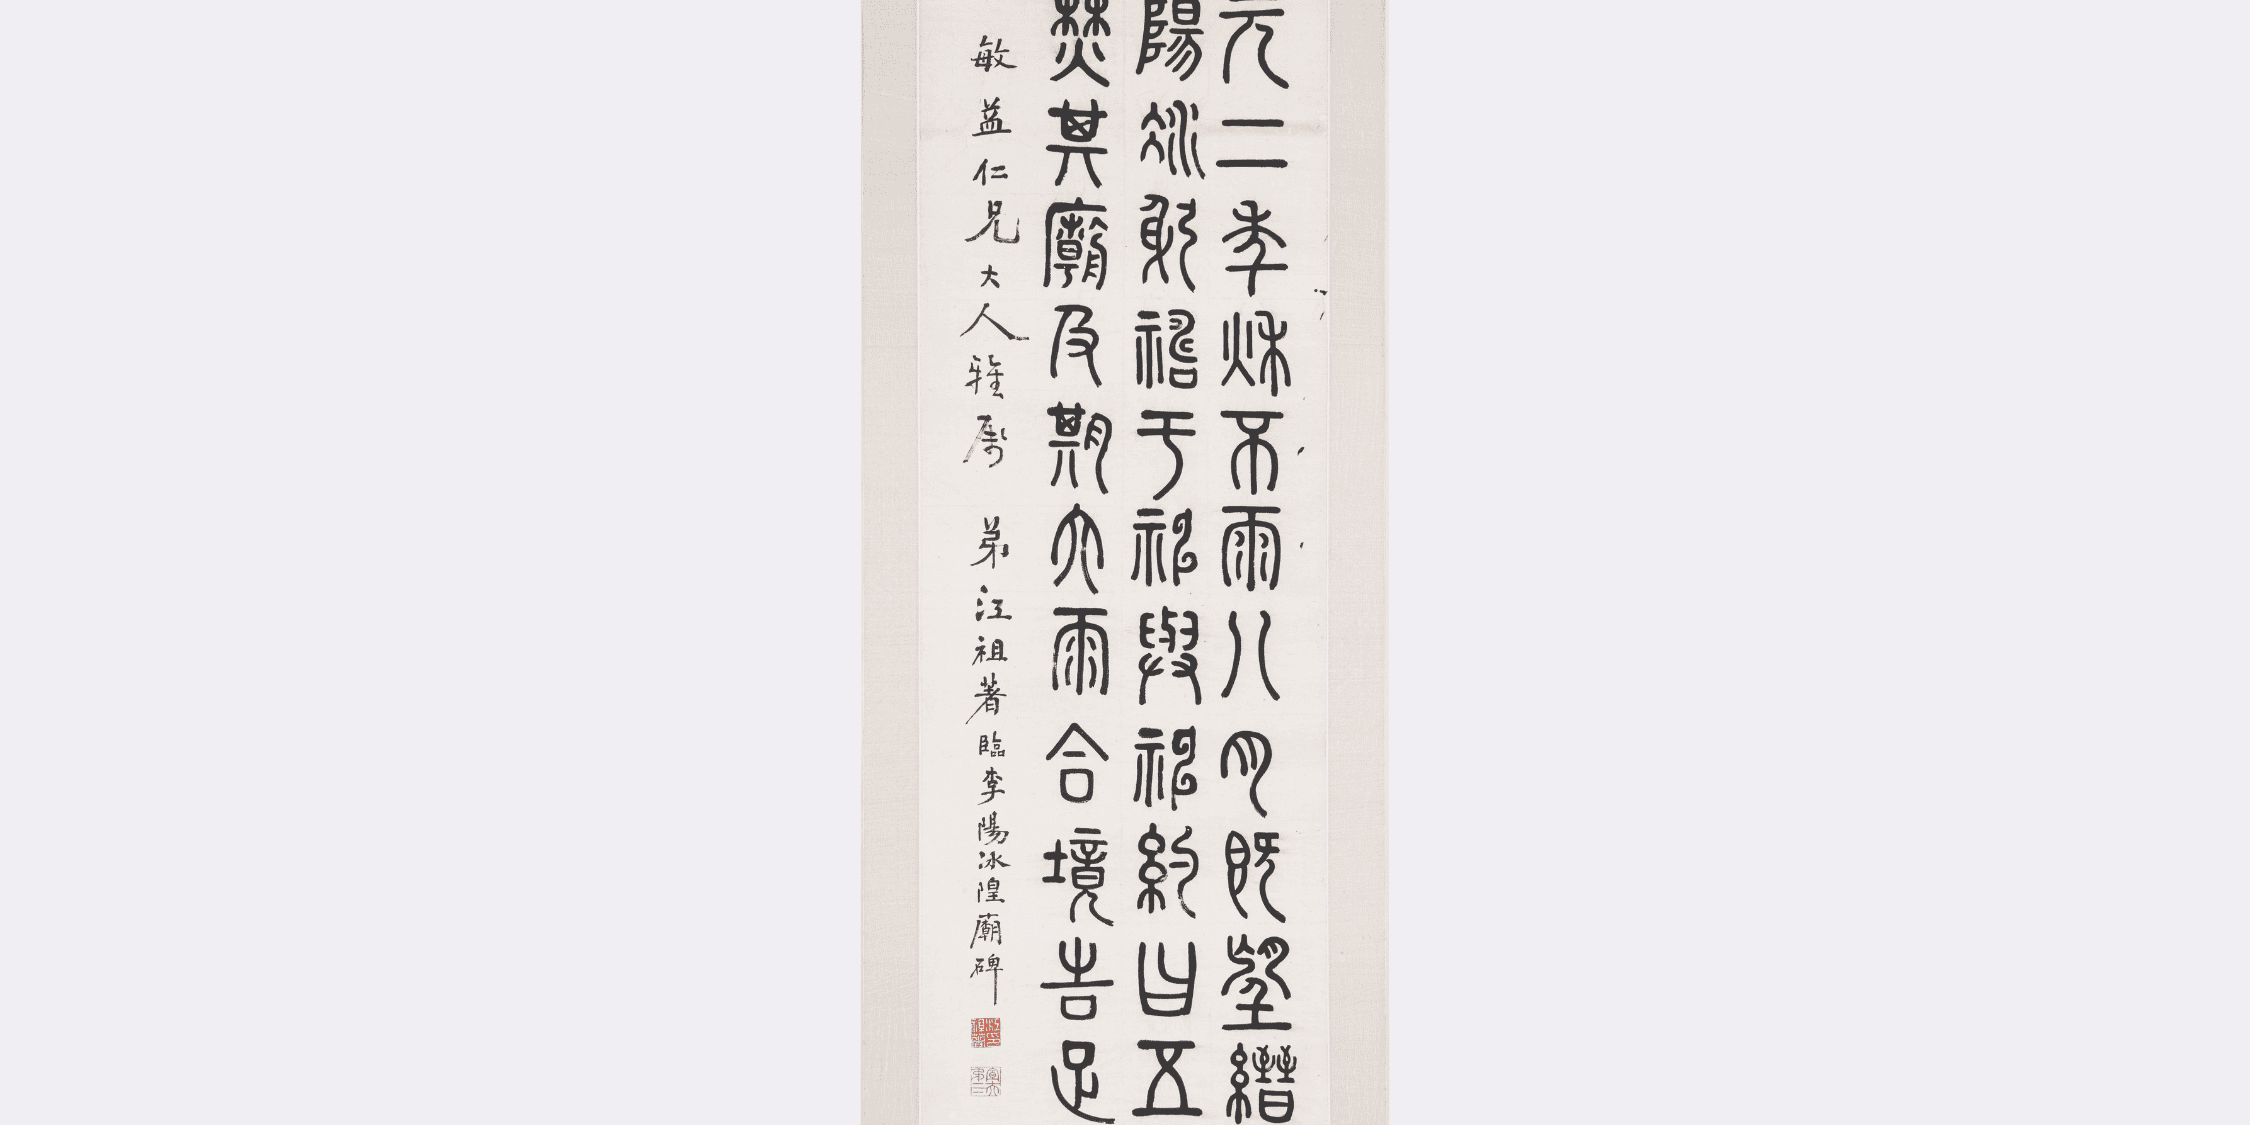 元二秊秌不雨八月既望縉
陽冰躬禱于神與神約曰五
焚其廟及期大雨合境告足
敏益仁兄大人雅屬 弟江祖著臨李陽冰隍廟碑